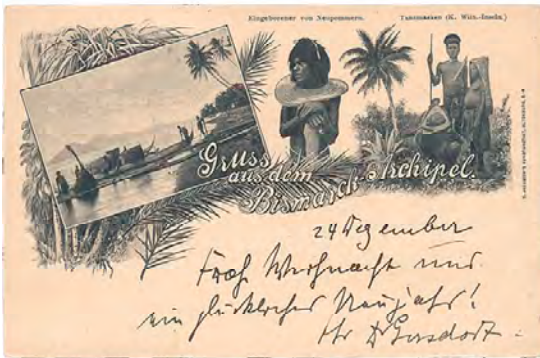 Eingeborener von Neupommern.
Tanzmasken (K. Wilh.-Inseln.)
Gruss
aus dem
Bismarck-Archipel.
24 Dezember
Froh Weihnacht und
ein glückliches Neujahr!
Ihr